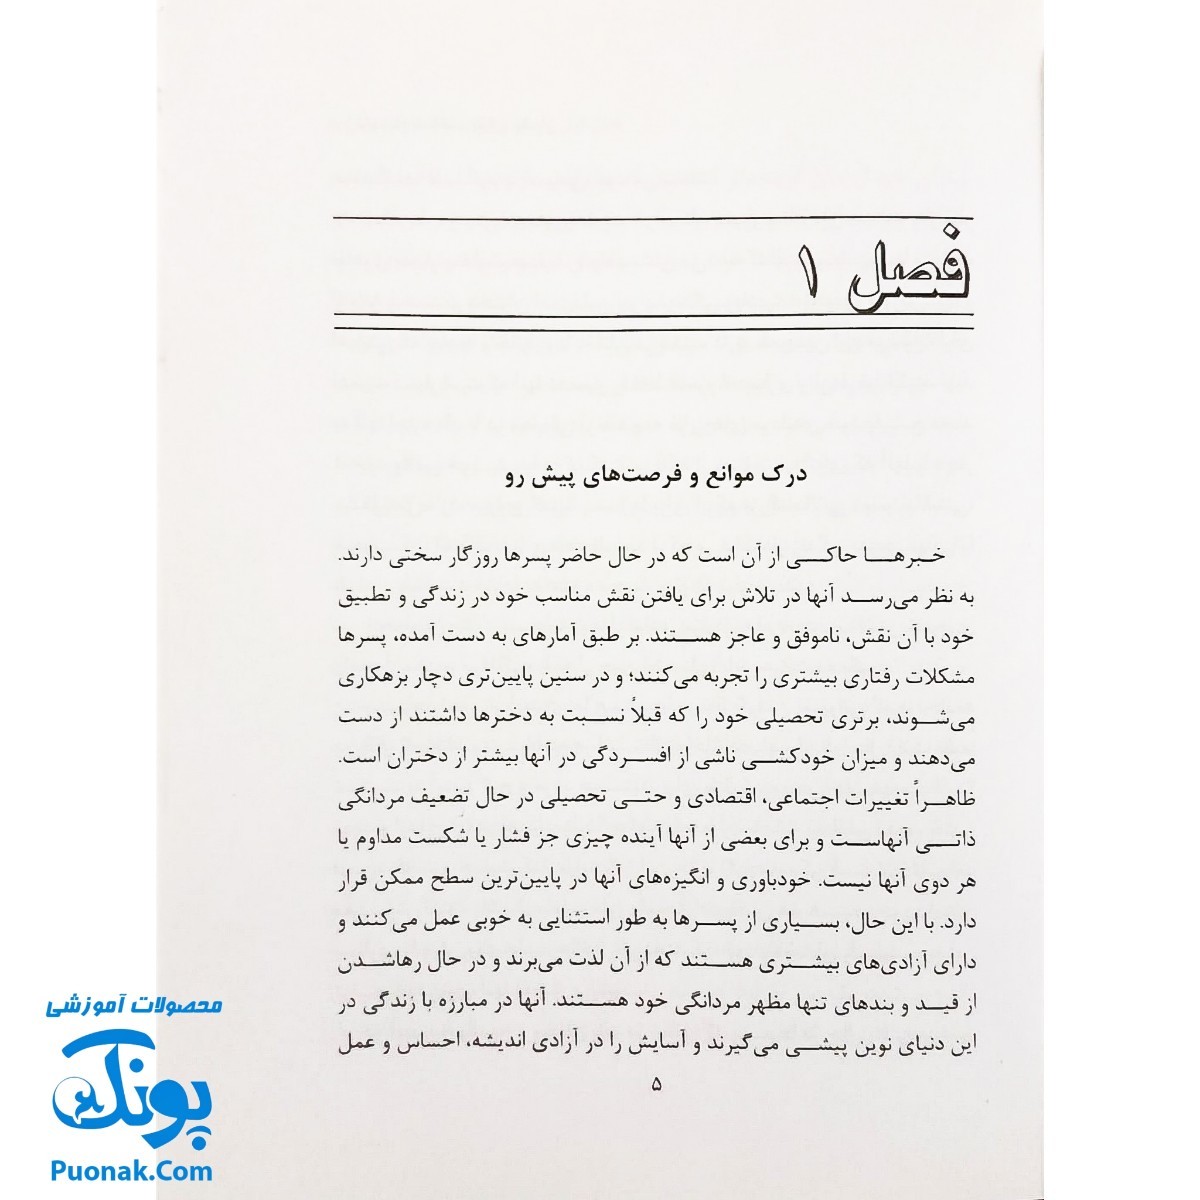 فصل ۱
درک موانع و فرصت‌های پیش رو
خبرها حاکی از آن است که در حال حاضر پسرها روزگار سختی دارند.
به نظر می‌رسد آنها در تلاش برای یافتن نقش مناسب خود در زندگی و تطبیق
خود با آن نقش، ناموفق و عاجز هستند. بر طبق آمارهای به دست آمده، پسرها
مشکلات رفتاری بیشتری را تجربه می‌کنند؛ و در سنین پایین‌تری دچار بزهکاری
می‌شوند، برتری تحصیلی خود را که قبلاً نسبت به دخترها داشتند از دست
می‌دهند و میزان خودکشی ناشی از افسردگی در آنها بیشتر از دختران است.
ظاهراً تغییرات اجتماعی، اقتصادی و حتی تحصیلی در حال تضعیف مردانگی
ذاتی آنهاست و برای بعضی از آنها آینده چیزی جز فشار یا شکست مداوم یا
هر دوی آنها نیست. خودباوری و انگیزه‌های آنها در پایین‌ترین سطح ممکن قرار
دارد. با این حال، بسیاری از پسرها به طور استثنایی به خوبی عمل می‌کنند و
دارای آزادی‌های بیشتری هستند که از آن لذت می‌برند و در حال رهاشدن
از قید و بندهای تنها مظهر مردانگی خود هستند. آنها در مبارزه با زندگی در
این دنیای نوین پیشی می‌گیرند و آسایش را در آزادی اندیشه، احساس و عمل
۵
محصولات آموزشی
پونک
Puonak.Com